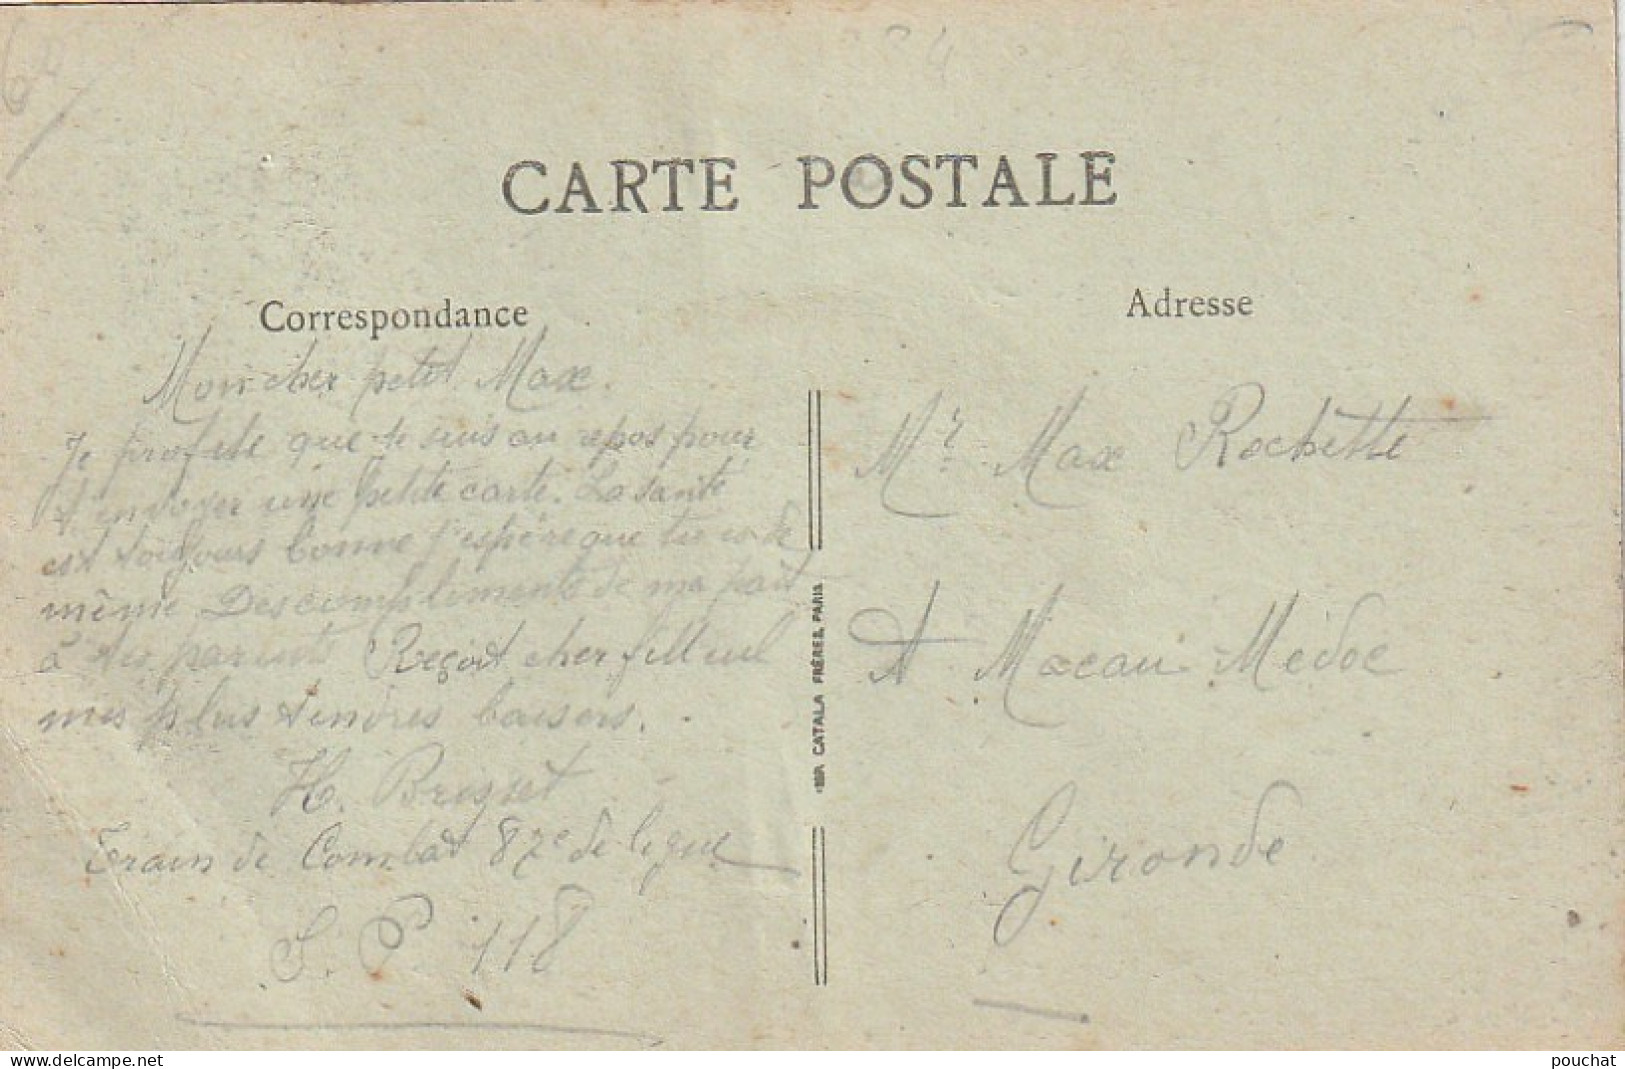 CARTE POSTALE
Correspondance
Adresse
Mon cher petit Max.
Je profite que je suis au repos pour
t'envoyer une petite carte. La santé
est toujours bonne j'espère que tu es de
même Des compliments de ma part
à tes parents Reçoit cher filleul
mes plus tendres baisers.
H.
Train de Combat 82e de ligue
S. P 118
Mr Max Rochette
A Macau Médoc
Gironde
IMP. CATALA FRÈRES, PARIS
www.delcampe.net
pouchat